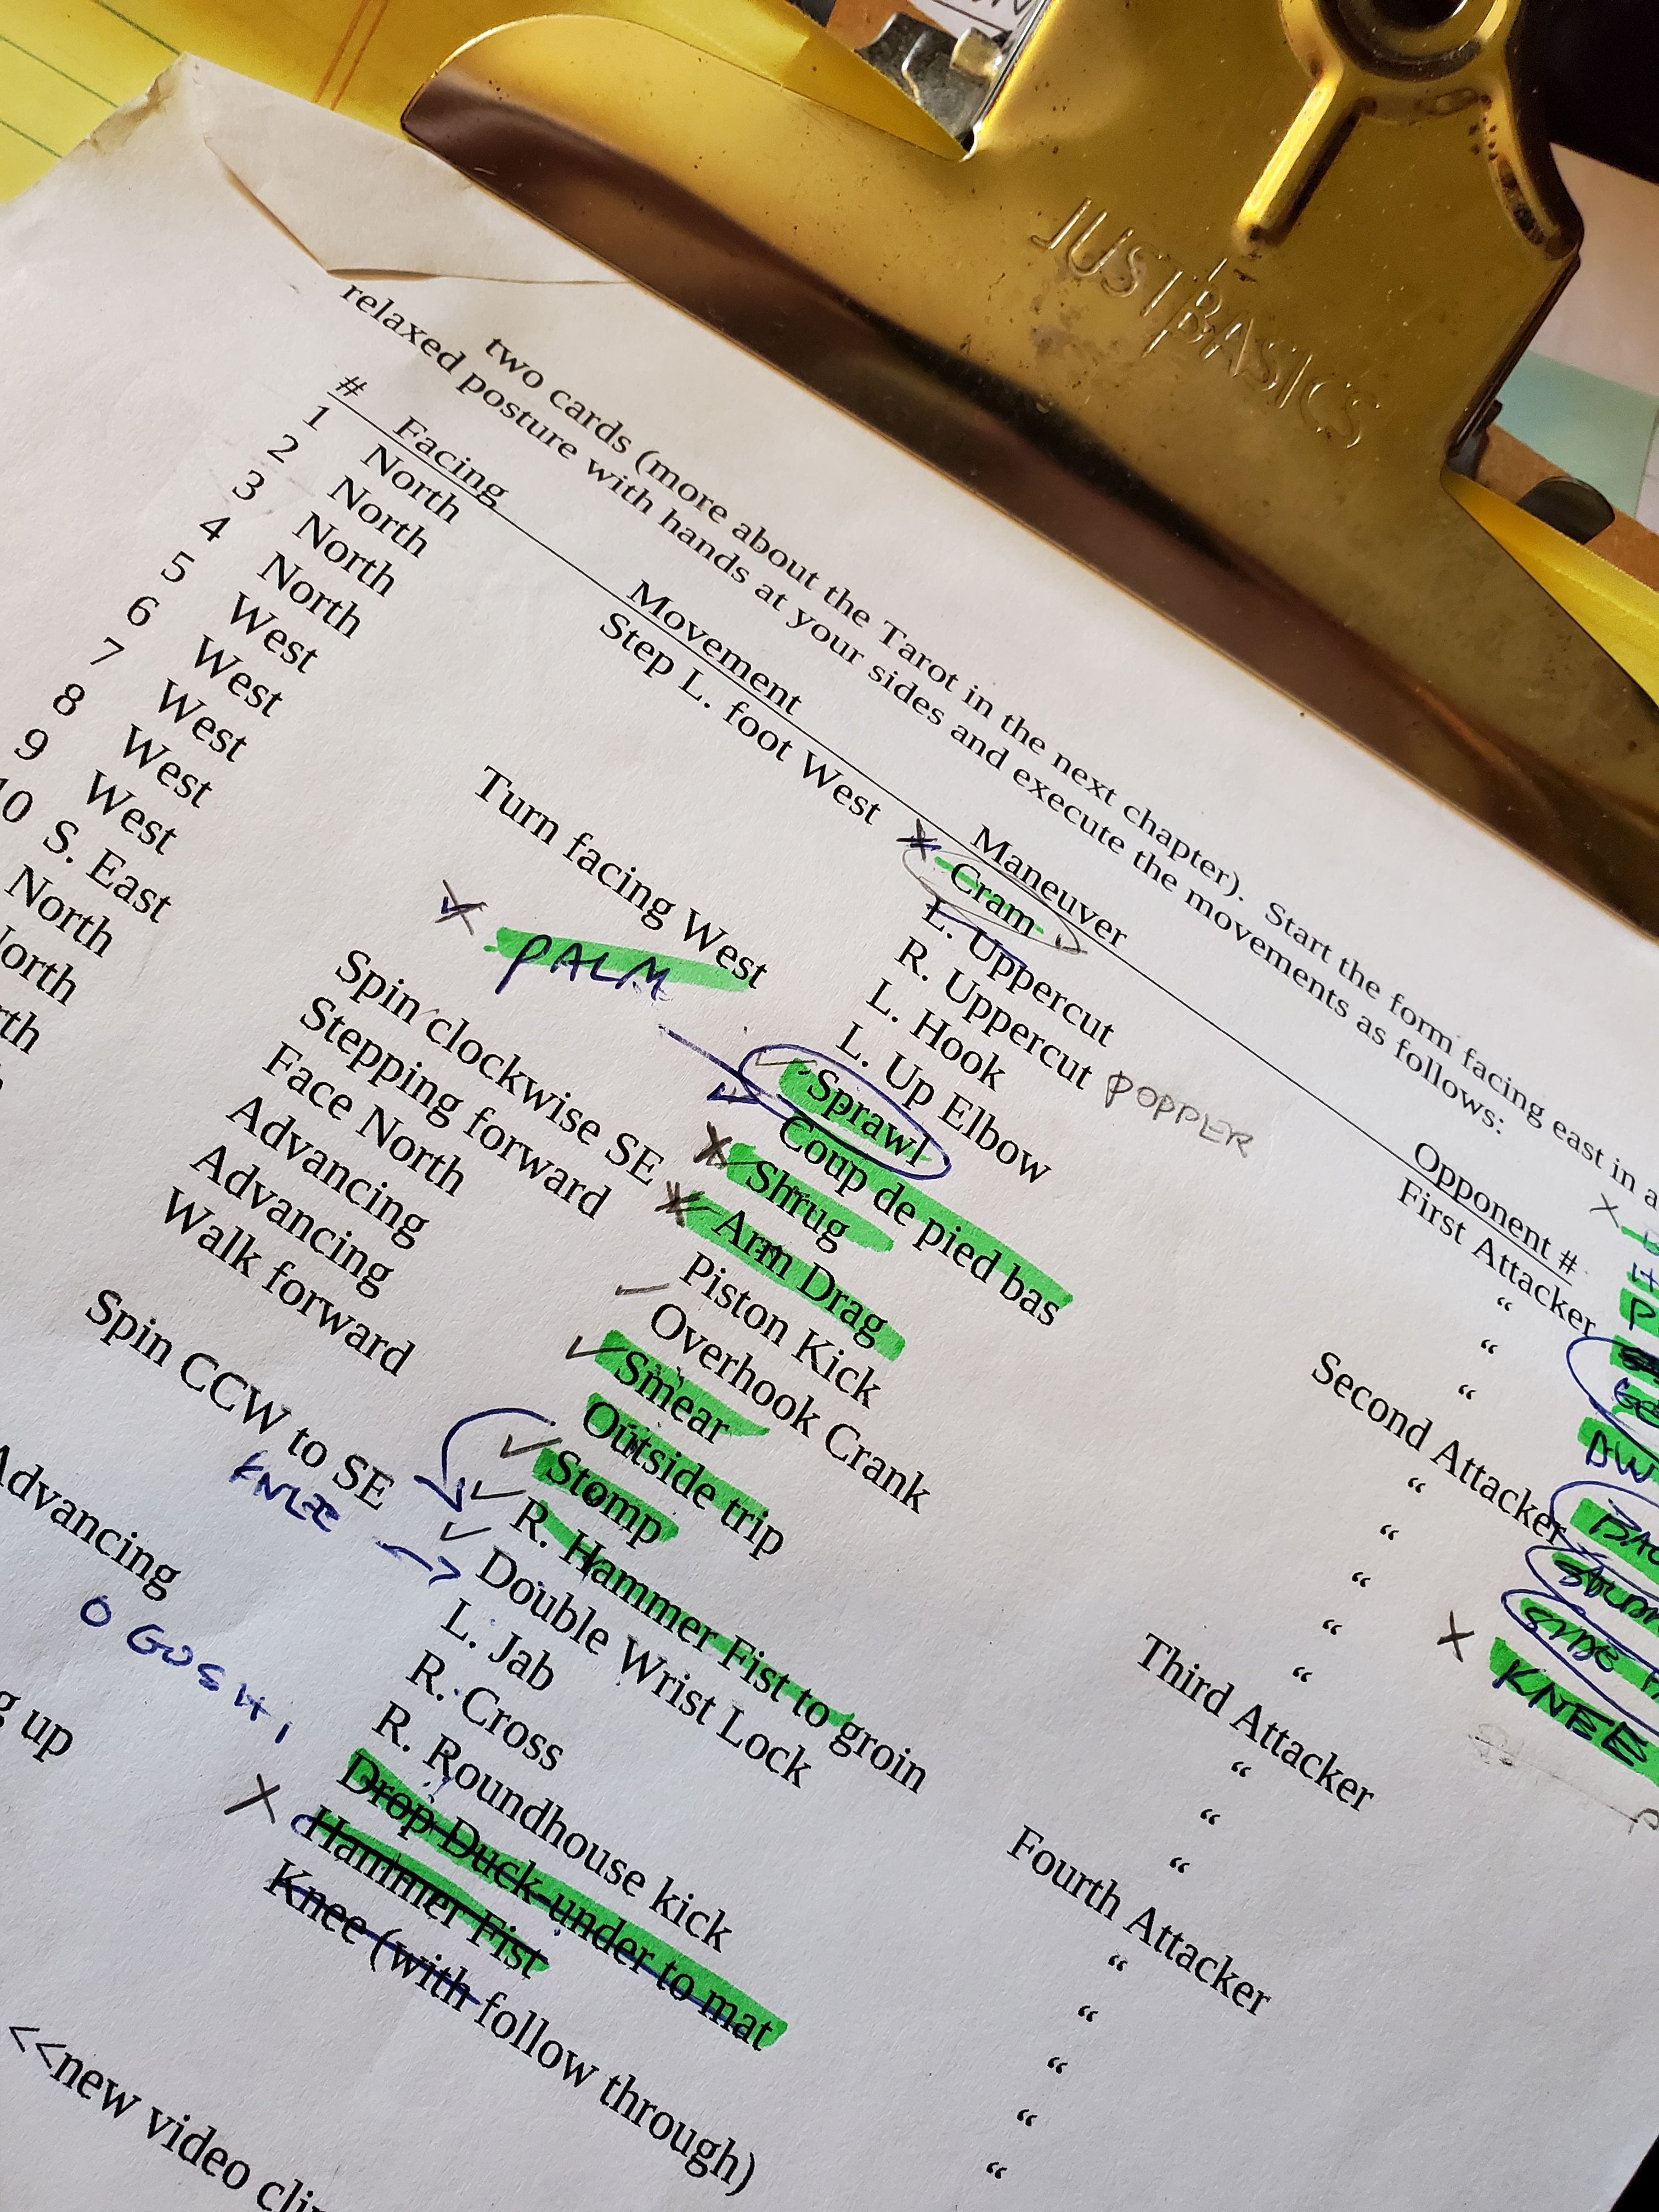 JUSTBASICS
two cards (more about the Tarot in the next chapter). Start the form facing east in a
relaxed posture with hands at your sides and execute the movements as follows:
# Facing Movement Maneuver Opponent #
1 North Step L. foot West Cram First Attacker
2 North L. Uppercut “
3 North R. Uppercut POPPER “
4 North L. Hook “
5 West Turn facing West L. Up Elbow Second Attacker
PALM
6 West Sprawl “
7 West Coup de pied bas “
8 West Spin clockwise SE Shrug “
9 West Stepping forward Arm Drag “
10 S. East Face North Piston Kick “
North Advancing Overhook Crank Third Attacker
orth Advancing Smear “
rth Walk forward Outside trip “
Stomp “
Spin CCW to SE R. Hammer Fist to groin Fourth Attacker
KNEE
Double Wrist Lock “
Advancing L. Jab “
O GOSHI
R. Cross “
g up R. Roundhouse kick “
Drop Duck-under to mat “
Hammer Fist
Knee (with follow through)
<<new video cli
KNEE